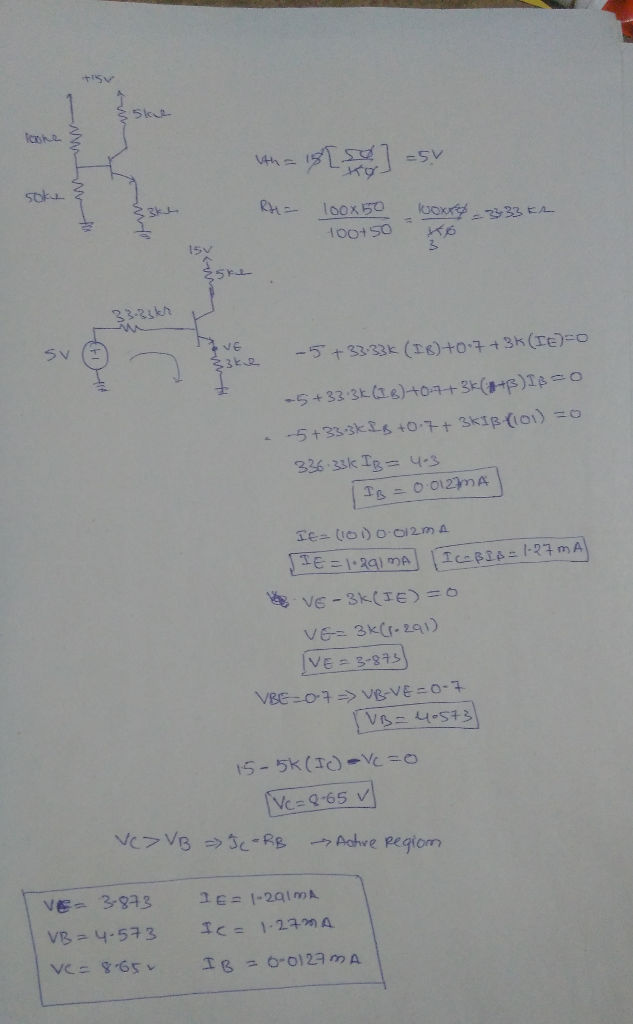 +15V
5kΩ
100kΩ
50kΩ
3kΩ
Vth = 15[50/150] = 5V
Rth = 100x50/100+50 = 100x50/150 = 33.33 kΩ
3
15V
5kΩ
33.33kΩ
5V
VE
3kΩ
-5 + 33.33K (IB) + 0.7 + 3K (IE) = 0
-5 + 33.3K (IB) + 0.7 + 3K (1+β) IB = 0
-5 + 33.3K IB + 0.7 + 3K IB (101) = 0
336.33K IB = 4.3
IB = 0.0127mA
IE = (101) 0.012mA
IE = 1.291 mA IC = βIB = 1.27mA
VE - 3K (IE) = 0
VE = 3K (1.291)
VE = 3.873
VBE = 0.7 ⇒ VB-VE = 0.7
VB = 4.573
15 - 5K (IC) - VC = 0
VC = 8.65 V
VC > VB ⇒ JC - RB → Active Region
VE = 3.873 IE = 1.291mA
VB = 4.573 IC = 1.27mA
VC = 8.65V IB = 0.0127mA